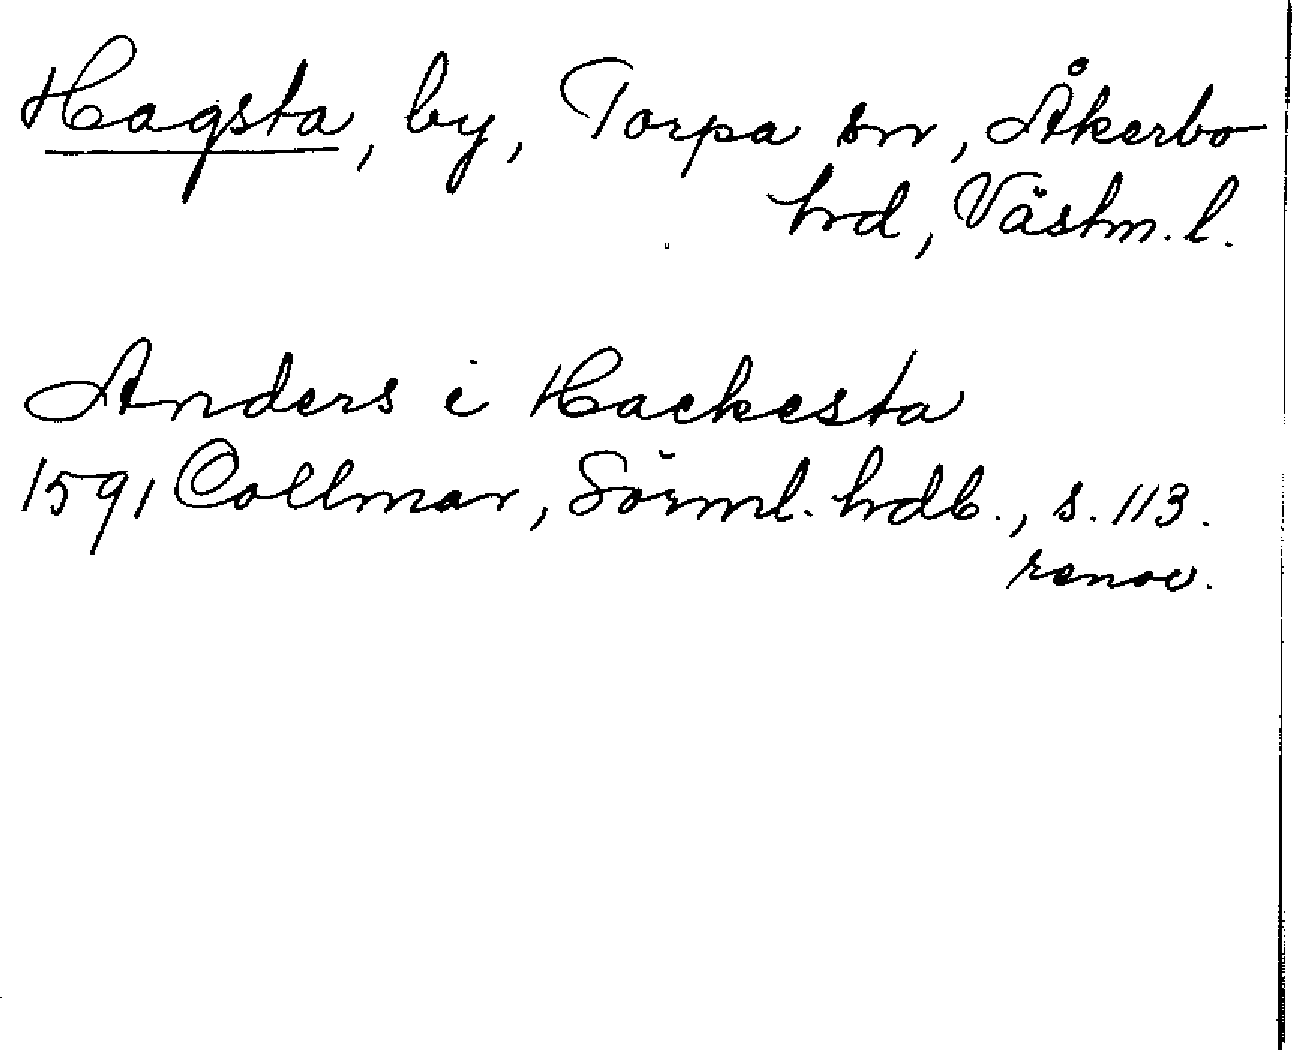 Hagsta, by, Torpa sn, Åkerbo
hd, Västm. l.
Anders i Hackesta
1591 Collmar, Sörml. hdb., s. 113.
renov.